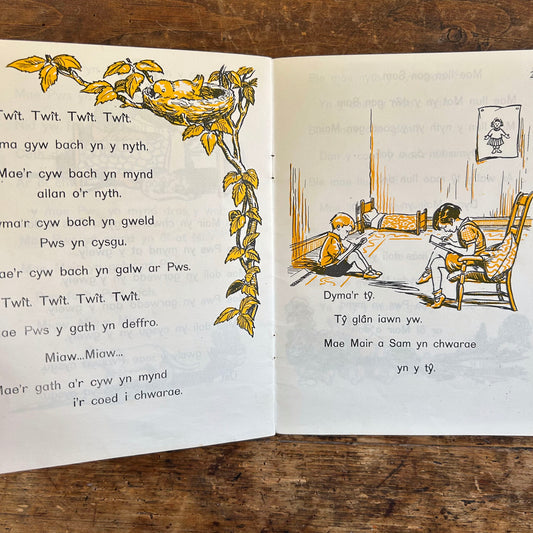 Twît. Twît. Twît. Twît.
ma gyw bach yn y nyth.
Mae'r cyw bach yn mynd
allan o'r nyth.
yma'r cyw bach yn gweld
Pws yn cysgu.
ae'r cyw bach yn galw ar Pws.
Twît. Twît. Twît. Twît.
ae Pws y gath yn deffro.
Miaw...Miaw...
Mae'r gath a'r cyw yn mynd
i'r coed i chwarae.
Dyma'r tŷ.
Tŷ glân iawn yw.
Mae Mair a Sam yn chwarae
yn y tŷ.